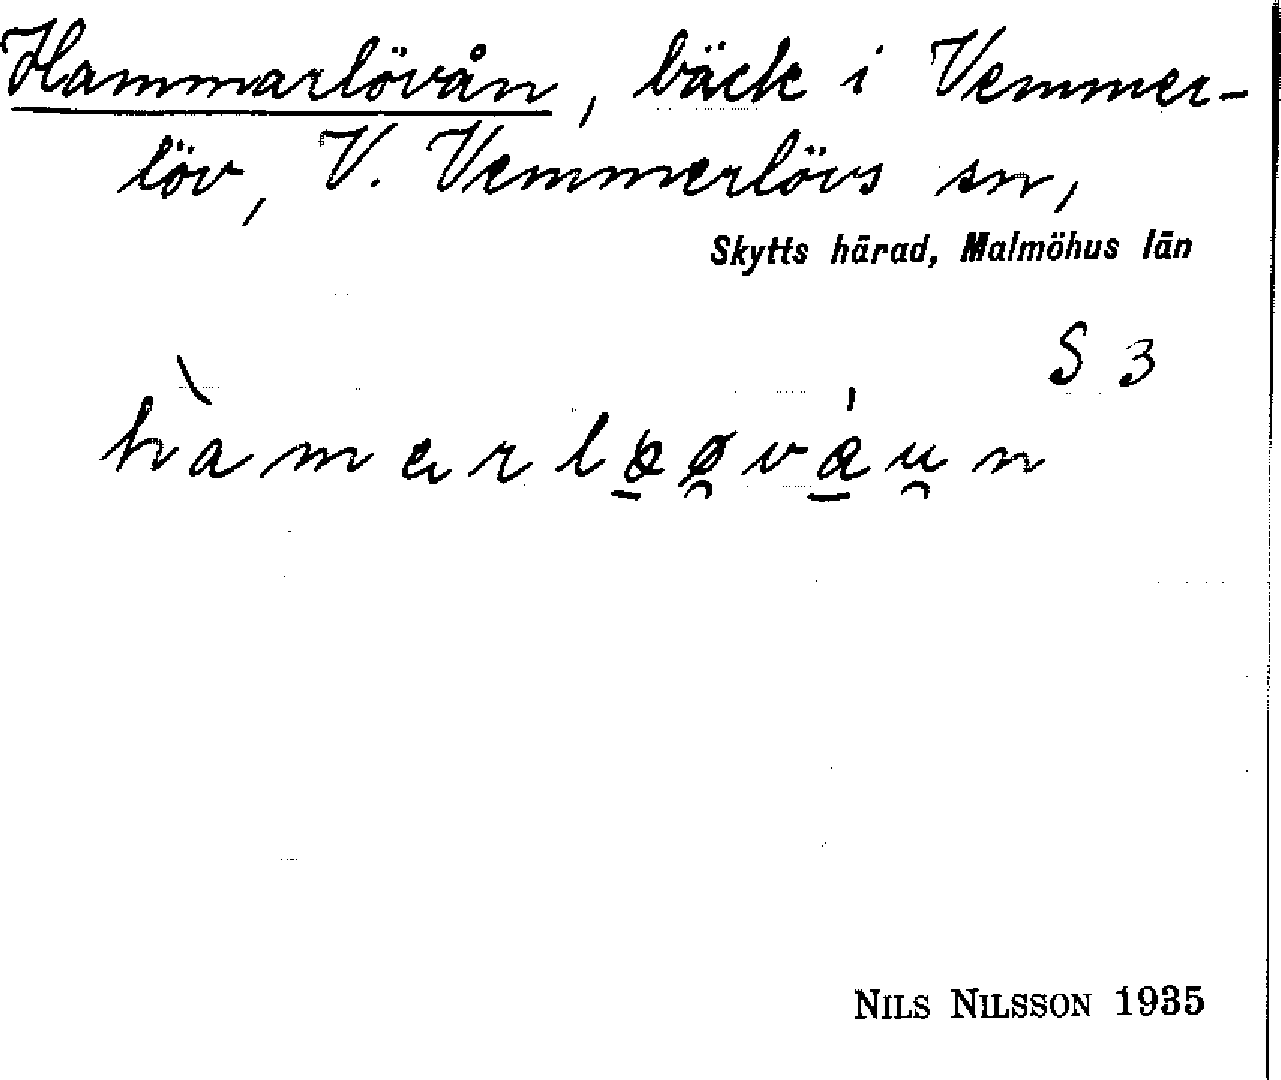 Hammarlövån, bäck i Vemmer-
löv, V. Vemmerlövs sn,
Skytts härad, Malmöhus län
S 3
NILS NILSSON 1935